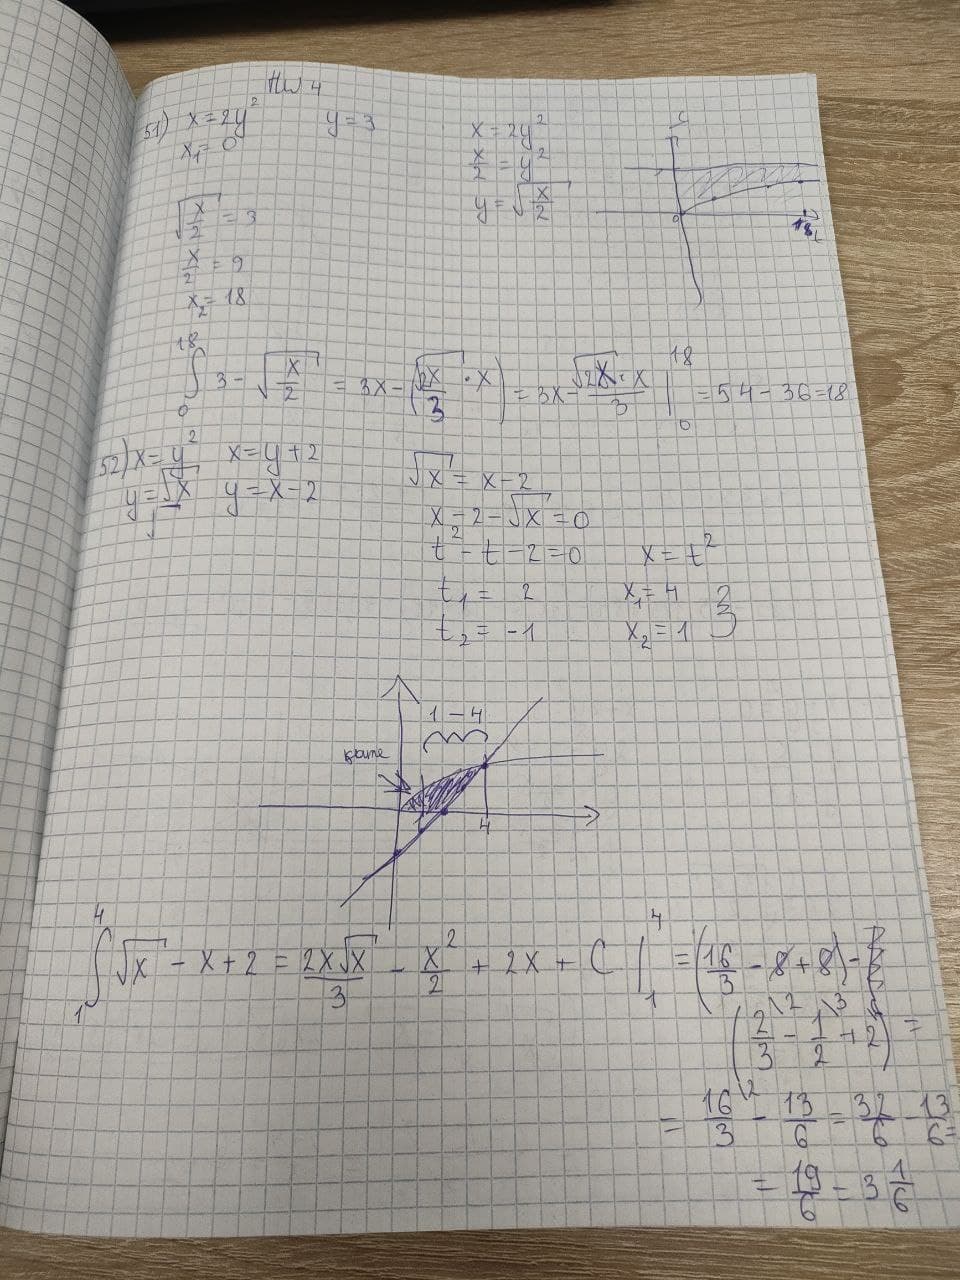 HW 4
51) x = 2y² y = 3
x₁ = 0
√(x/2) = 3
x/2 = 9
x₂ = 18
x = 2y²
x/2 = y²
y = √(x/2)
0 18
∫₀¹⁸ 3 - √(x/2) = 3x - (√(2x)/3 · x) = 3x - (√(2x) · x)/3 |₀¹⁸ = 54 - 36 = 18
52) x = y² x = y + 2
y = √x y = x - 2
√x = x - 2
x - 2 - √x = 0
t² - t - 2 = 0 x = t²
t₁ = 2 x₁ = 4
t₂ = -1 x₂ = 1
1 - 4
4
∫₁⁴ √x - x + 2 = 2x√x/3 - x²/2 + 2x + C |₁⁴ = (16/3 - 8 + 8) -
(2/3\2 - 1/2\3 + 2) =
= 16/3\2 - 13/6 = 32/6 - 13/6 =
= 19/6 = 3 1/6